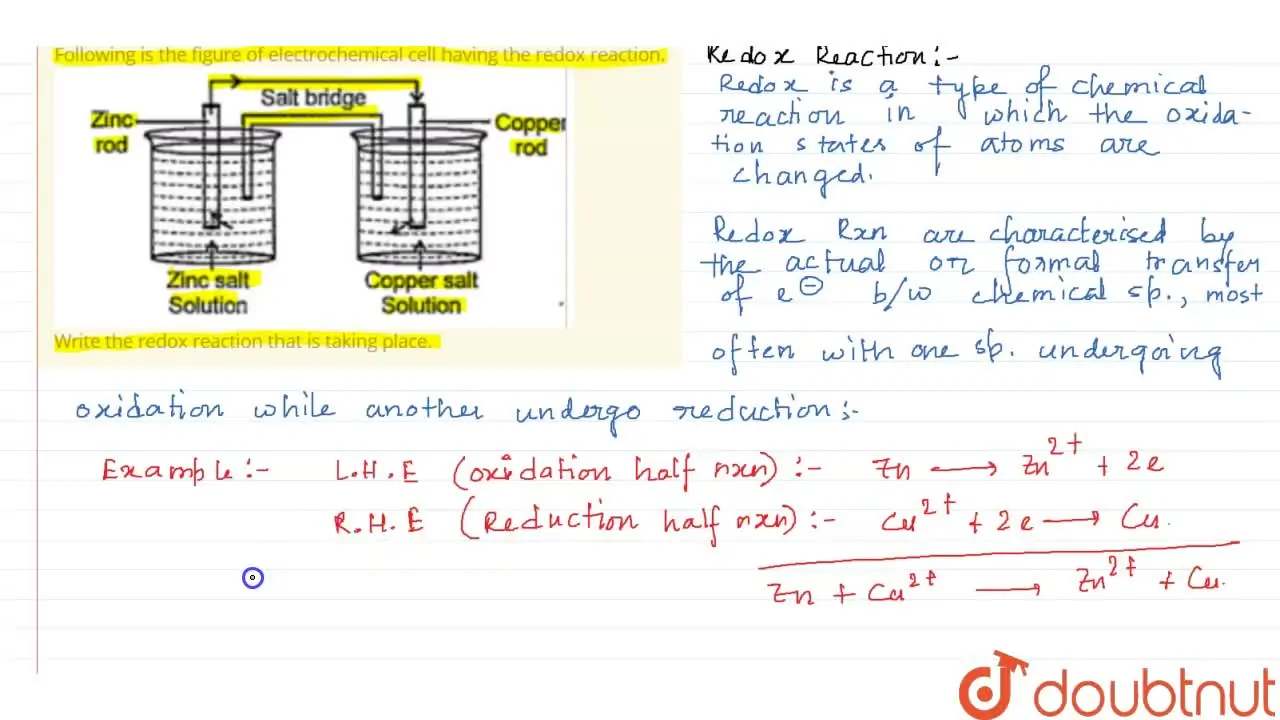 Following is the figure of electrochemical cell having the redox reaction.
Salt bridge
Zinc
rod
Copper
rod
Zinc salt
Solution
Copper salt
Solution
Write the redox reaction that is taking place.
Redox Reaction:-
Redox is a type of chemical
reaction in which the oxida-
tion states of atoms are
changed.
Redox Rxn are characterised by
the actual or formal transfer
of e⊖ b/w chemical sp., most
often with one sp. undergoing
oxidation while another undergo reduction:-
Example:- L.H.E (oxidation half rxn) :- Zn ⟶ Zn²⁺ + 2e
R.H.E (Reduction half rxn) :- Cu²⁺ + 2e ⟶ Cu.
Zn + Cu²⁺ ⟶ Zn²⁺ + Cu.
doubtnut